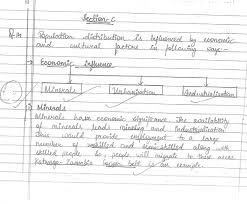 Section-C
Population distribution is influenced by economic
and cultural factors in following ways:-
→ Economic influence
Minerals Urbanisation Industrialisation
1) Minerals
Minerals have economic significance. The availability
of minerals leads mining and industrialisation
This would provide employment to a large
number of skilled and semi-skilled along with
skilled people. So, people will migrate to these areas
Katanga Zambia copper belt is an example.